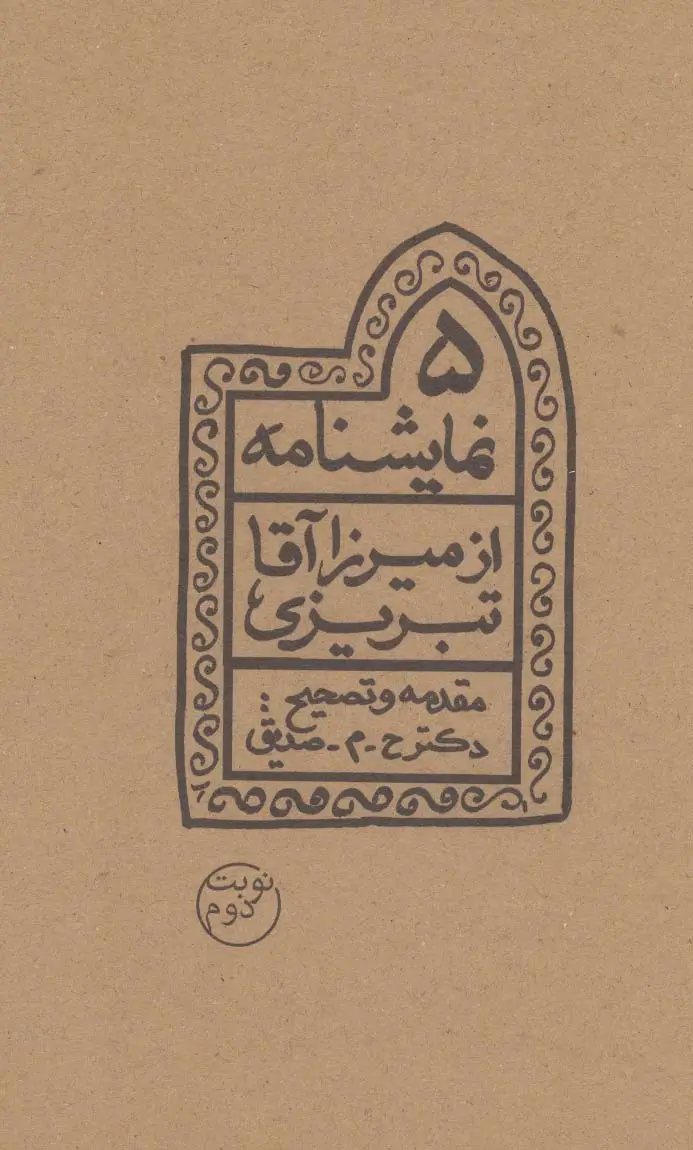 ۵
نمایشنامه
از میرزا آقا
تبریزی
مقدمه و تصحیح :
دکتر ح - م - صدیق
نوبت
دوم